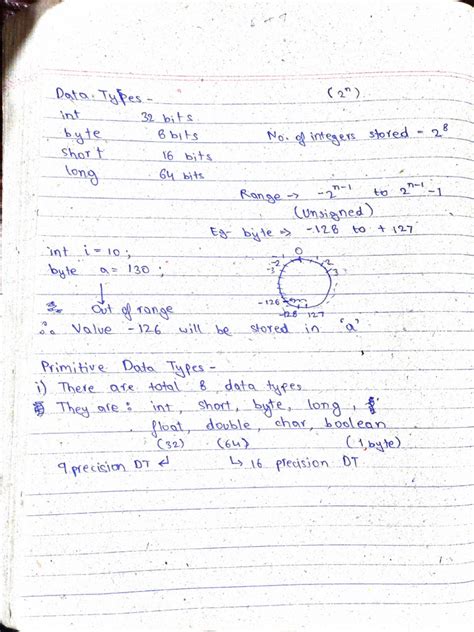 (2ⁿ)
Data Types -
int 32 bits
byte 8 bits No. of integers stored = 2⁸
short 16 bits
long 64 bits
Range → -2ⁿ⁻¹ to 2ⁿ⁻¹-1
(Unsigned)
Eg- byte ⇒ -128 to +127
int i = 10 ;
byte a = 130 ;
0
-2 2
-3 3
-126
-128 127
Out of range
∴ Value -126 will be stored in 'a'
Primitive Data Types -
i) There are total 8 data types
They are : int, short, byte, long,
float, double, char, boolean
(32) (64) (1 byte)
9 precision DT ↲ ↳ 16 precision DT